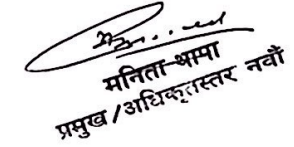 मनिता थापा
प्रमुख/अधिकृतस्तर नवौं